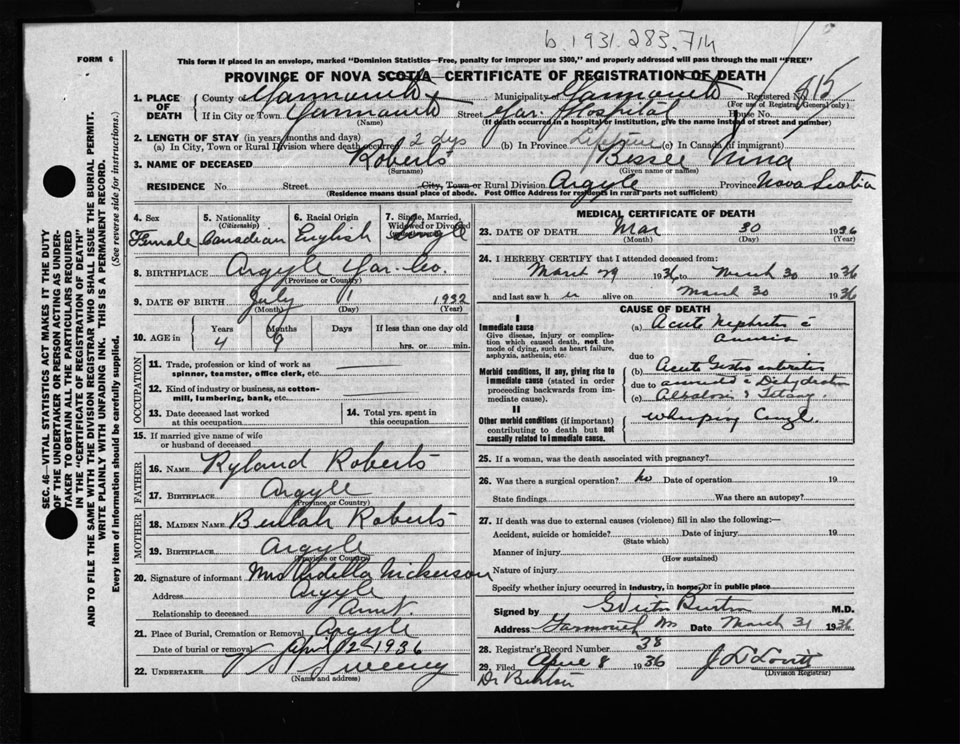 b. 1931. 283.714
FORM 6
This form if placed in an envelope, marked "Dominion Statistics—Free, penalty for improper use $300," and properly addressed will pass through the mail "FREE"
PROVINCE OF NOVA SCOTIA—CERTIFICATE OF REGISTRATION OF DEATH
1. PLACE OF DEATH
County of Yarmouth Municipality of Yarmouth Registered No. 815
(For use of Registrar General only)
If in City or Town Yarmouth Street Yar. Hospital House No.
(Name) (If death occurred in a hospital or institution, give the name instead of street and number)
2. LENGTH OF STAY (in years, months and days)
(a) In City, Town or Rural Division where death occurred 2 dys (b) In Province Lifetime (c) In Canada (if immigrant)
3. NAME OF DECEASED Roberts Bessie Nina
(Surname) (Given name or names)
RESIDENCE No. Street City, Town or Rural Division Argyle Province Nova Scotia
(Residence means usual place of abode. Post Office Address for residents in rural parts not sufficient)
4. Sex Female
5. Nationality (Citizenship) Canadian
6. Racial Origin English
7. Single, Married, Widowed or Divorced Single
8. BIRTHPLACE Argyle Yar. Co.
(Province or Country)
9. DATE OF BIRTH July 1 1932
(Month) (Day) (Year)
10. AGE in Years Months Days If less than one day old
4 9 hrs. or min.
OCCUPATION
11. Trade, profession or kind of work as spinner, teamster, office clerk, etc.
12. Kind of industry or business, as cotton-mill, lumbering, bank, etc.
13. Date deceased last worked at this occupation
14. Total yrs. spent in this occupation
15. If married give name of wife or husband of deceased
FATHER
16. NAME Ryland Roberts
17. BIRTHPLACE Argyle
(Province or Country)
MOTHER
18. MAIDEN NAME Beulah Roberts
19. BIRTHPLACE Argyle
(Province or Country)
20. Signature of informant Mrs Ardella Nickerson
Address Argyle
Relationship to deceased Aunt
21. Place of Burial, Cremation or Removal Argyle
Date of burial or removal April 2 - 1936
22. UNDERTAKER V S Sweeney
(Name and address)
MEDICAL CERTIFICATE OF DEATH
23. DATE OF DEATH Mar 30 1936
(Month) (Day) (Year)
24. I HEREBY CERTIFY that I attended deceased from:
March 29 1936 to March 30 1936
and last saw h er alive on March 30 1936
CAUSE OF DEATH
I
Immediate cause
Give disease, injury or complication which caused death, not the mode of dying, such as heart failure, asphyxia, asthenia, etc.
(a) Acute Nephritis c̄
Anuria
due to
Morbid conditions, if any, giving rise to immediate cause (stated in order proceeding backwards from immediate cause).
(b) Acute Gastro enteritis
due to Dehydration
(c) Alkalosis & Tetany
II
Other morbid conditions (if important) contributing to death but not causally related to immediate cause.
Whooping Cough
25. If a woman, was the death associated with pregnancy?
26. Was there a surgical operation? No Date of operation 19
State findings Was there an autopsy?
27. If death was due to external causes (violence) fill in also the following:—
Accident, suicide or homicide? Date of injury 19
(State which)
Manner of injury
(How sustained)
Nature of injury
Specify whether injury occurred in industry, in home, or in public place
Signed by G Victor Burton M.D.
Address Yarmouth NS Date March 31 1936
28. Registrar's Record Number 38
29. Filed April 8 1936 J D Lovitt
(Division Registrar)
Dr Burton
SEC. 46—VITAL STATISTICS ACT MAKES IT THE DUTY OF THE UNDERTAKER OR PERSON ACTING AS UNDERTAKER TO OBTAIN ALL THE PARTICULARS REQUIRED IN THE "CERTIFICATE OF REGISTRATION OF DEATH"
AND TO FILE THE SAME WITH THE DIVISION REGISTRAR WHO SHALL ISSUE THE BURIAL PERMIT.
WRITE PLAINLY WITH UNFADING INK. THIS IS A PERMANENT RECORD.
Every item of information should be carefully supplied. (See reverse side for instructions.)